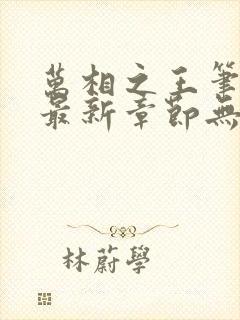 萬相之王筆
最新章節無
林蔚學